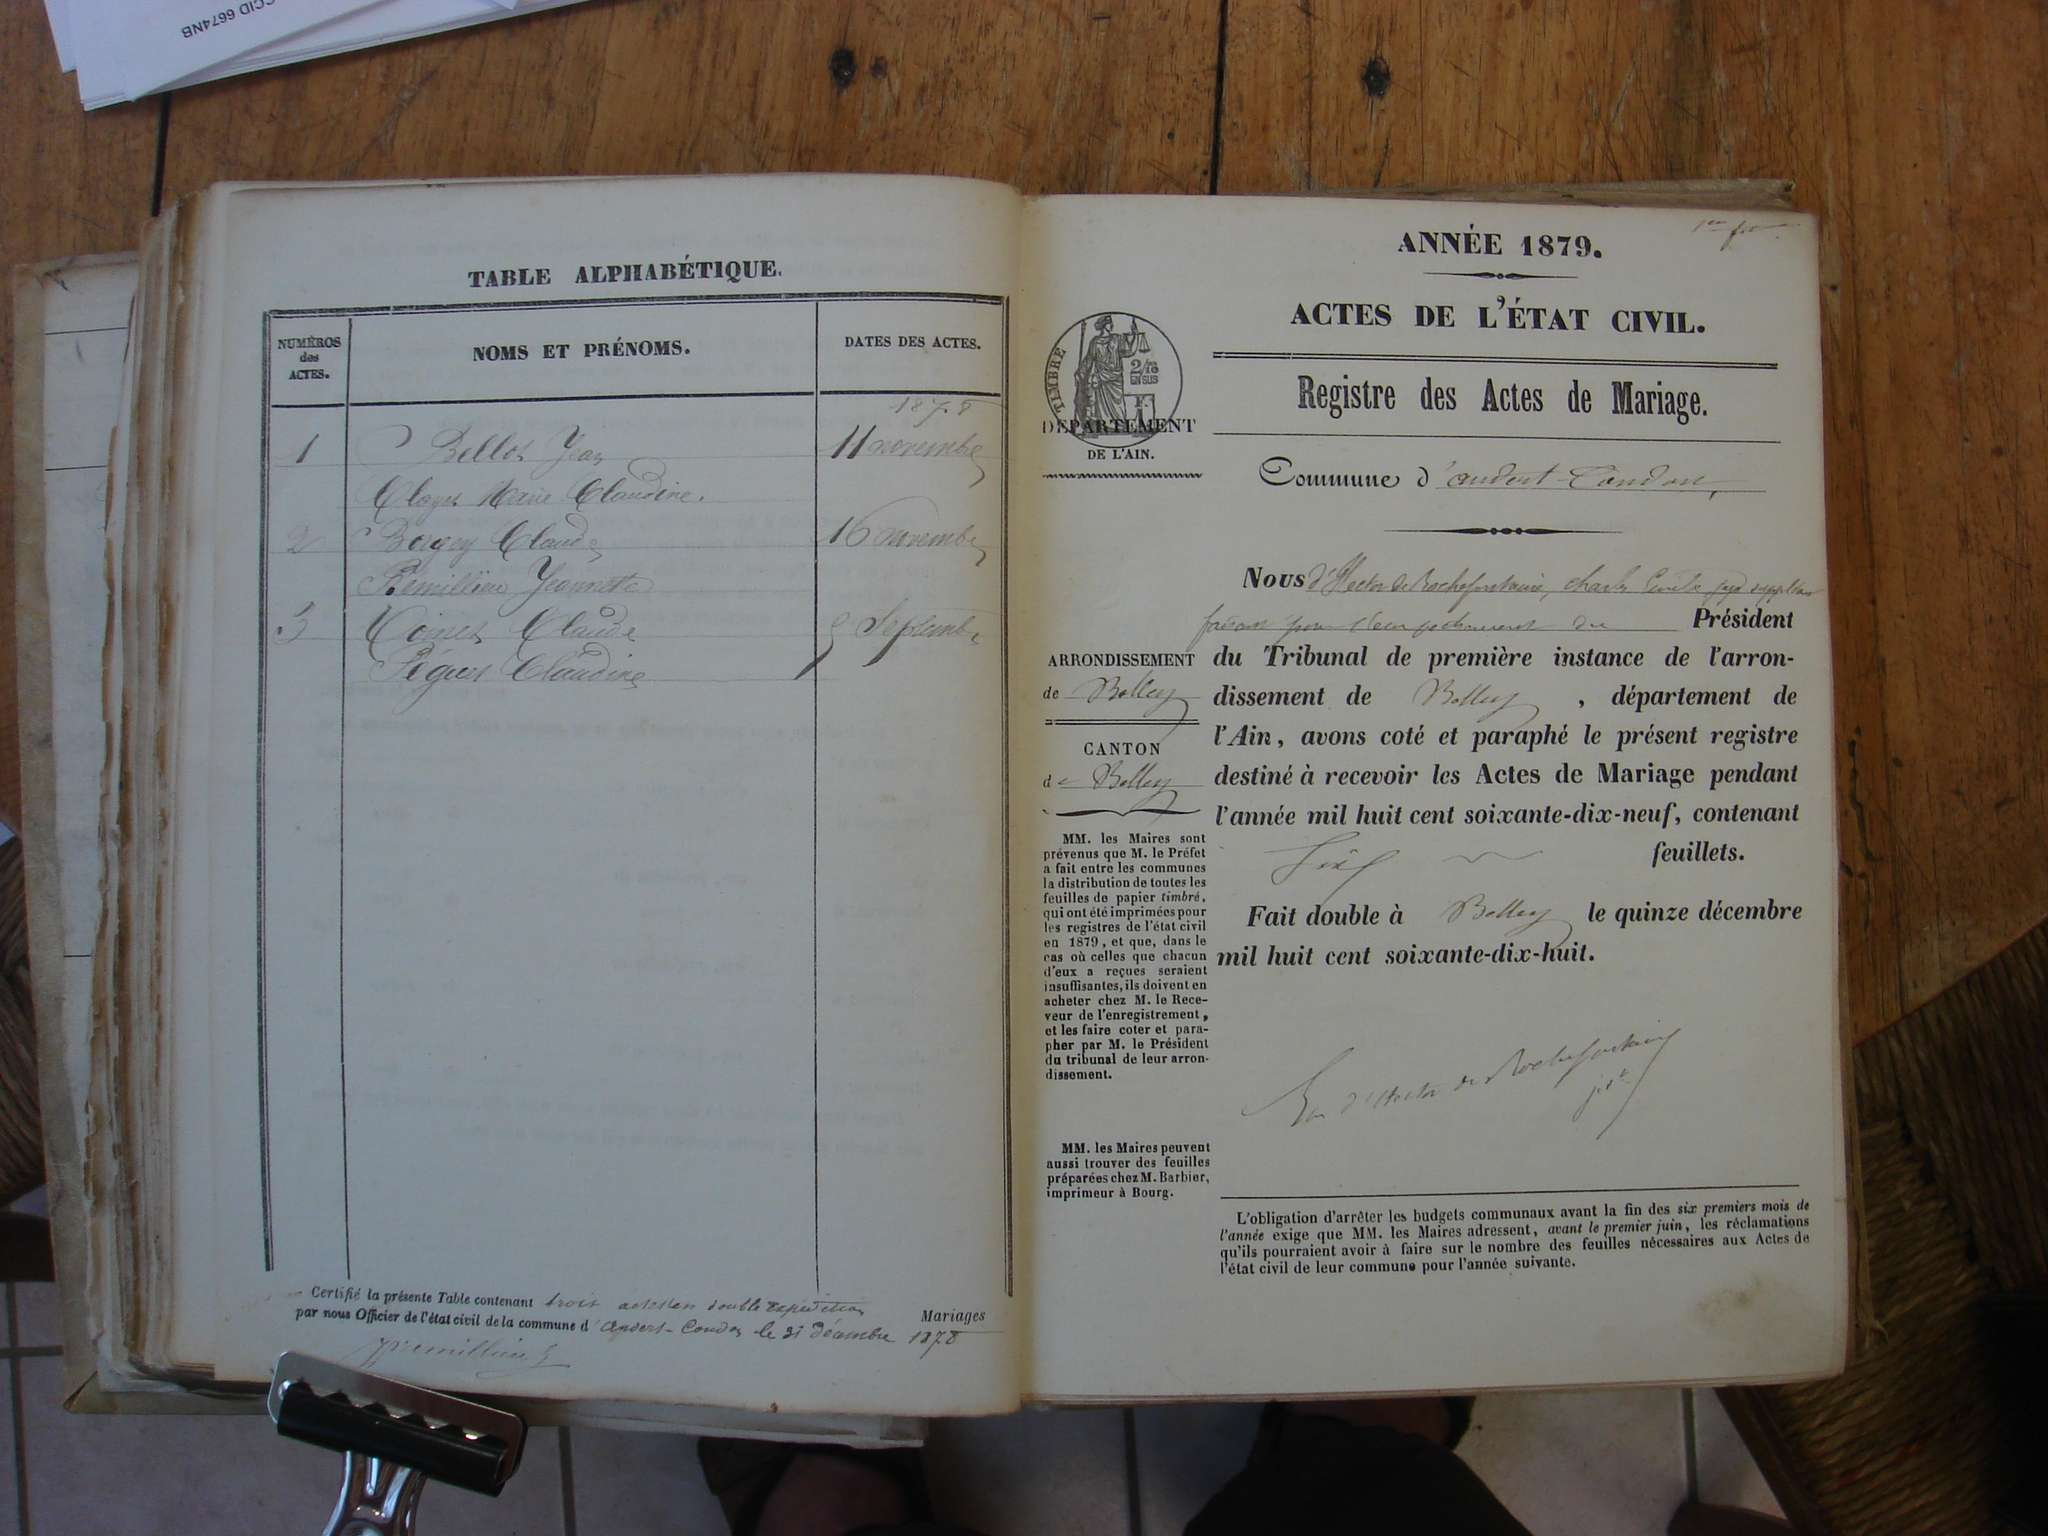 CCID 6674NB
TABLE ALPHABÉTIQUE.
NUMÉROS
des
ACTES.
NOMS ET PRÉNOMS.
DATES DES ACTES.
1878
1 Bellot Jean 11 novembre
Marie Claudine.
2 Claude 16 novembre
Remillieu Jeannette
3 Claude 5 Septembre
Claudine
Certifié la présente Table contenant trois actes en double expédition Mariages
par nous Officier de l'état civil de la commune d'Andert-Condon le 31 décembre 1878
1er
ANNÉE 1879.
ACTES DE L'ÉTAT CIVIL.
Registre des Actes de Mariage.
TIMBRE
2/10
EN SUS
DÉPARTEMENT
DE L'AIN.
Commune d'andert-Condon,
ARRONDISSEMENT
de Belley
CANTON
de Belley
MM. les Maires sont
prévenus que M. le Préfet
a fait entre les communes
la distribution de toutes les
feuilles de papier timbré,
qui ont été imprimées pour
les registres de l'état civil
en 1879, et que, dans le
cas où celles que chacun
d'eux a reçues seraient
insuffisantes, ils doivent en
acheter chez M. le Rece-
veur de l'enregistrement,
et les faire coter et para-
pher par M. le Président
du tribunal de leur arron-
dissement.
MM. les Maires peuvent
aussi trouver des feuilles
préparées chez M. Barbier,
imprimeur à Bourg.
Nous d'Hector de Rochefontaine, Charles juge suppléant
faisant pour l'empêchement du Président
du Tribunal de première instance de l'arron-
dissement de Belley, département de
l'Ain, avons coté et paraphé le présent registre
destiné à recevoir les Actes de Mariage pendant
l'année mil huit cent soixante-dix-neuf, contenant
feuillets.
Fait double à Belley le quinze décembre
mil huit cent soixante-dix-huit.
d'Hector de Rochefontaine
L'obligation d'arrêter les budgets communaux avant la fin des six premiers mois de
l'année exige que MM. les Maires adressent, avant le premier juin, les réclamations
qu'ils pourraient avoir à faire sur le nombre des feuilles nécessaires aux Actes de
l'état civil de leur commune pour l'année suivante.